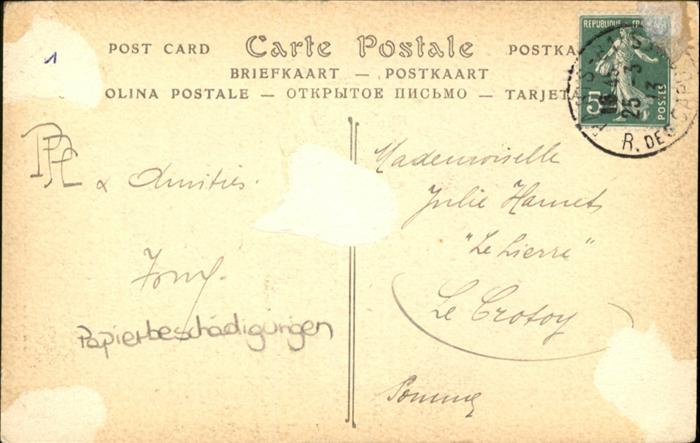 1
POST CARD Carte Postale POSTKA
BRIEFKAART — POSTKAART
OLINA POSTALE — ОТКРЫТОЕ ПИСЬМО — TARJETA
REPUBLIQUE FRA
5
POSTES
25
3
13
R. DES
& Amitiés.
Papierbeschädigungen
Mademoiselle
Julie Hamet
"Le Lierre"
Le Crotoy
Somme